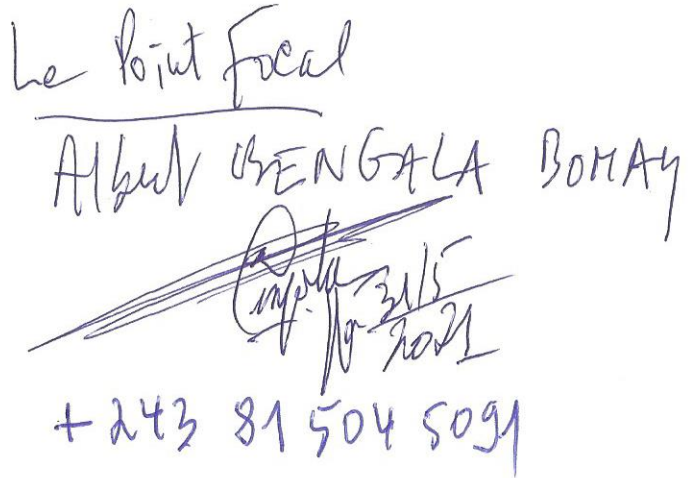 Le Point Focal
Albert BENGALA BOMAY
31/5
2021
+243 81 504 5091